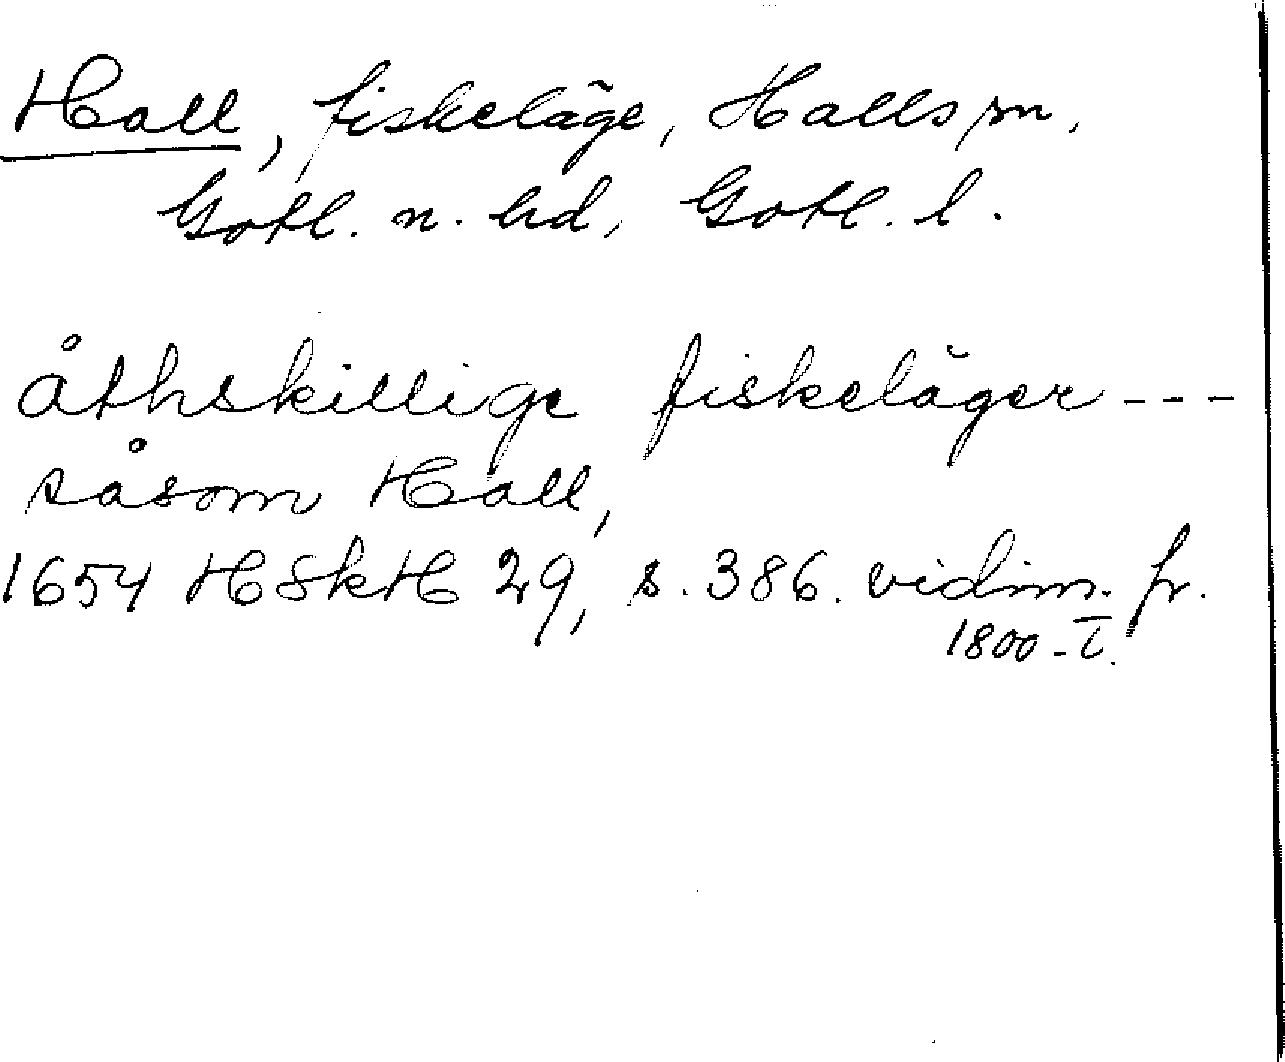 Hall, fiskeläge, Halls sn,
Gotl. n. hd, Gotl. l.
åthskillige fiskeläger ---
såsom Hall,
1654 HSkH 29, s. 386. vidim. fr.
1800-t.